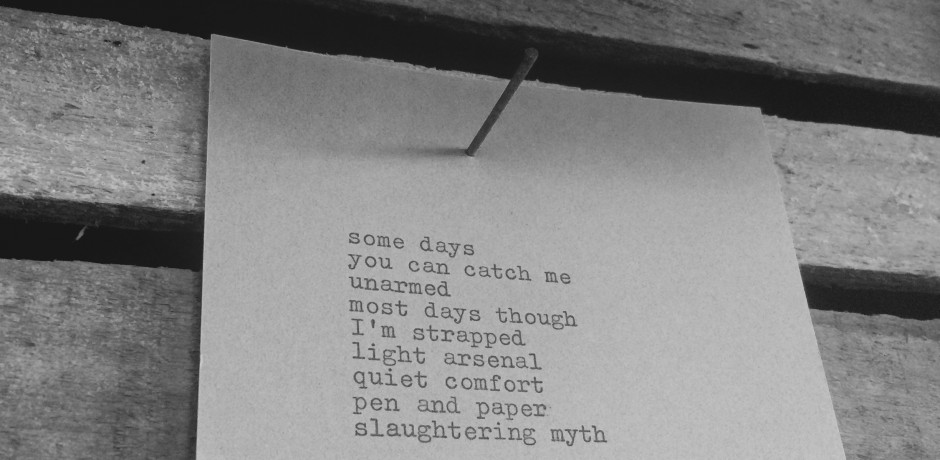 some days
you can catch me
unarmed
most days though
I'm strapped
light arsenal
quiet comfort
pen and paper
slaughtering myth